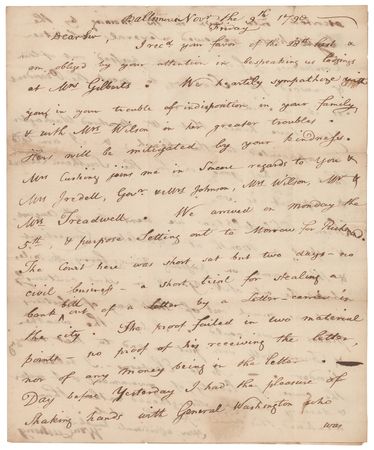 Baltimore Novr. the 9th 179
Friday
Dear Sir,
I recd. your favor of the last &
am obliged by your attention in bespeaking us lodgings
at Mrs Gilberts. We heartily sympathize with
you in your trouble of indisposition in your family
& with Mrs Wilson in her greater troubles.
Hers will be mitigated by your kindness.
Mrs Cushing joins me in Sincere regards to you &
Mrs Iredell, Govr. & Mrs Johnson, Mrs Wilson, Mr &
Mrs Treadwell. We arrived on monday the
5th, & purpose Setting out to Morrow for Richmond.
The Court here was short sat but two days – no
civil business – a short trial for stealing a
bank bill out of a letter by a letter-carrier in
the city. The proof failed in two material
points – no proof of his receiving the letter,
nor of any money being in the letter.
Day before Yesterday I had the pleasure of
Shaking hands with General Washington who
was